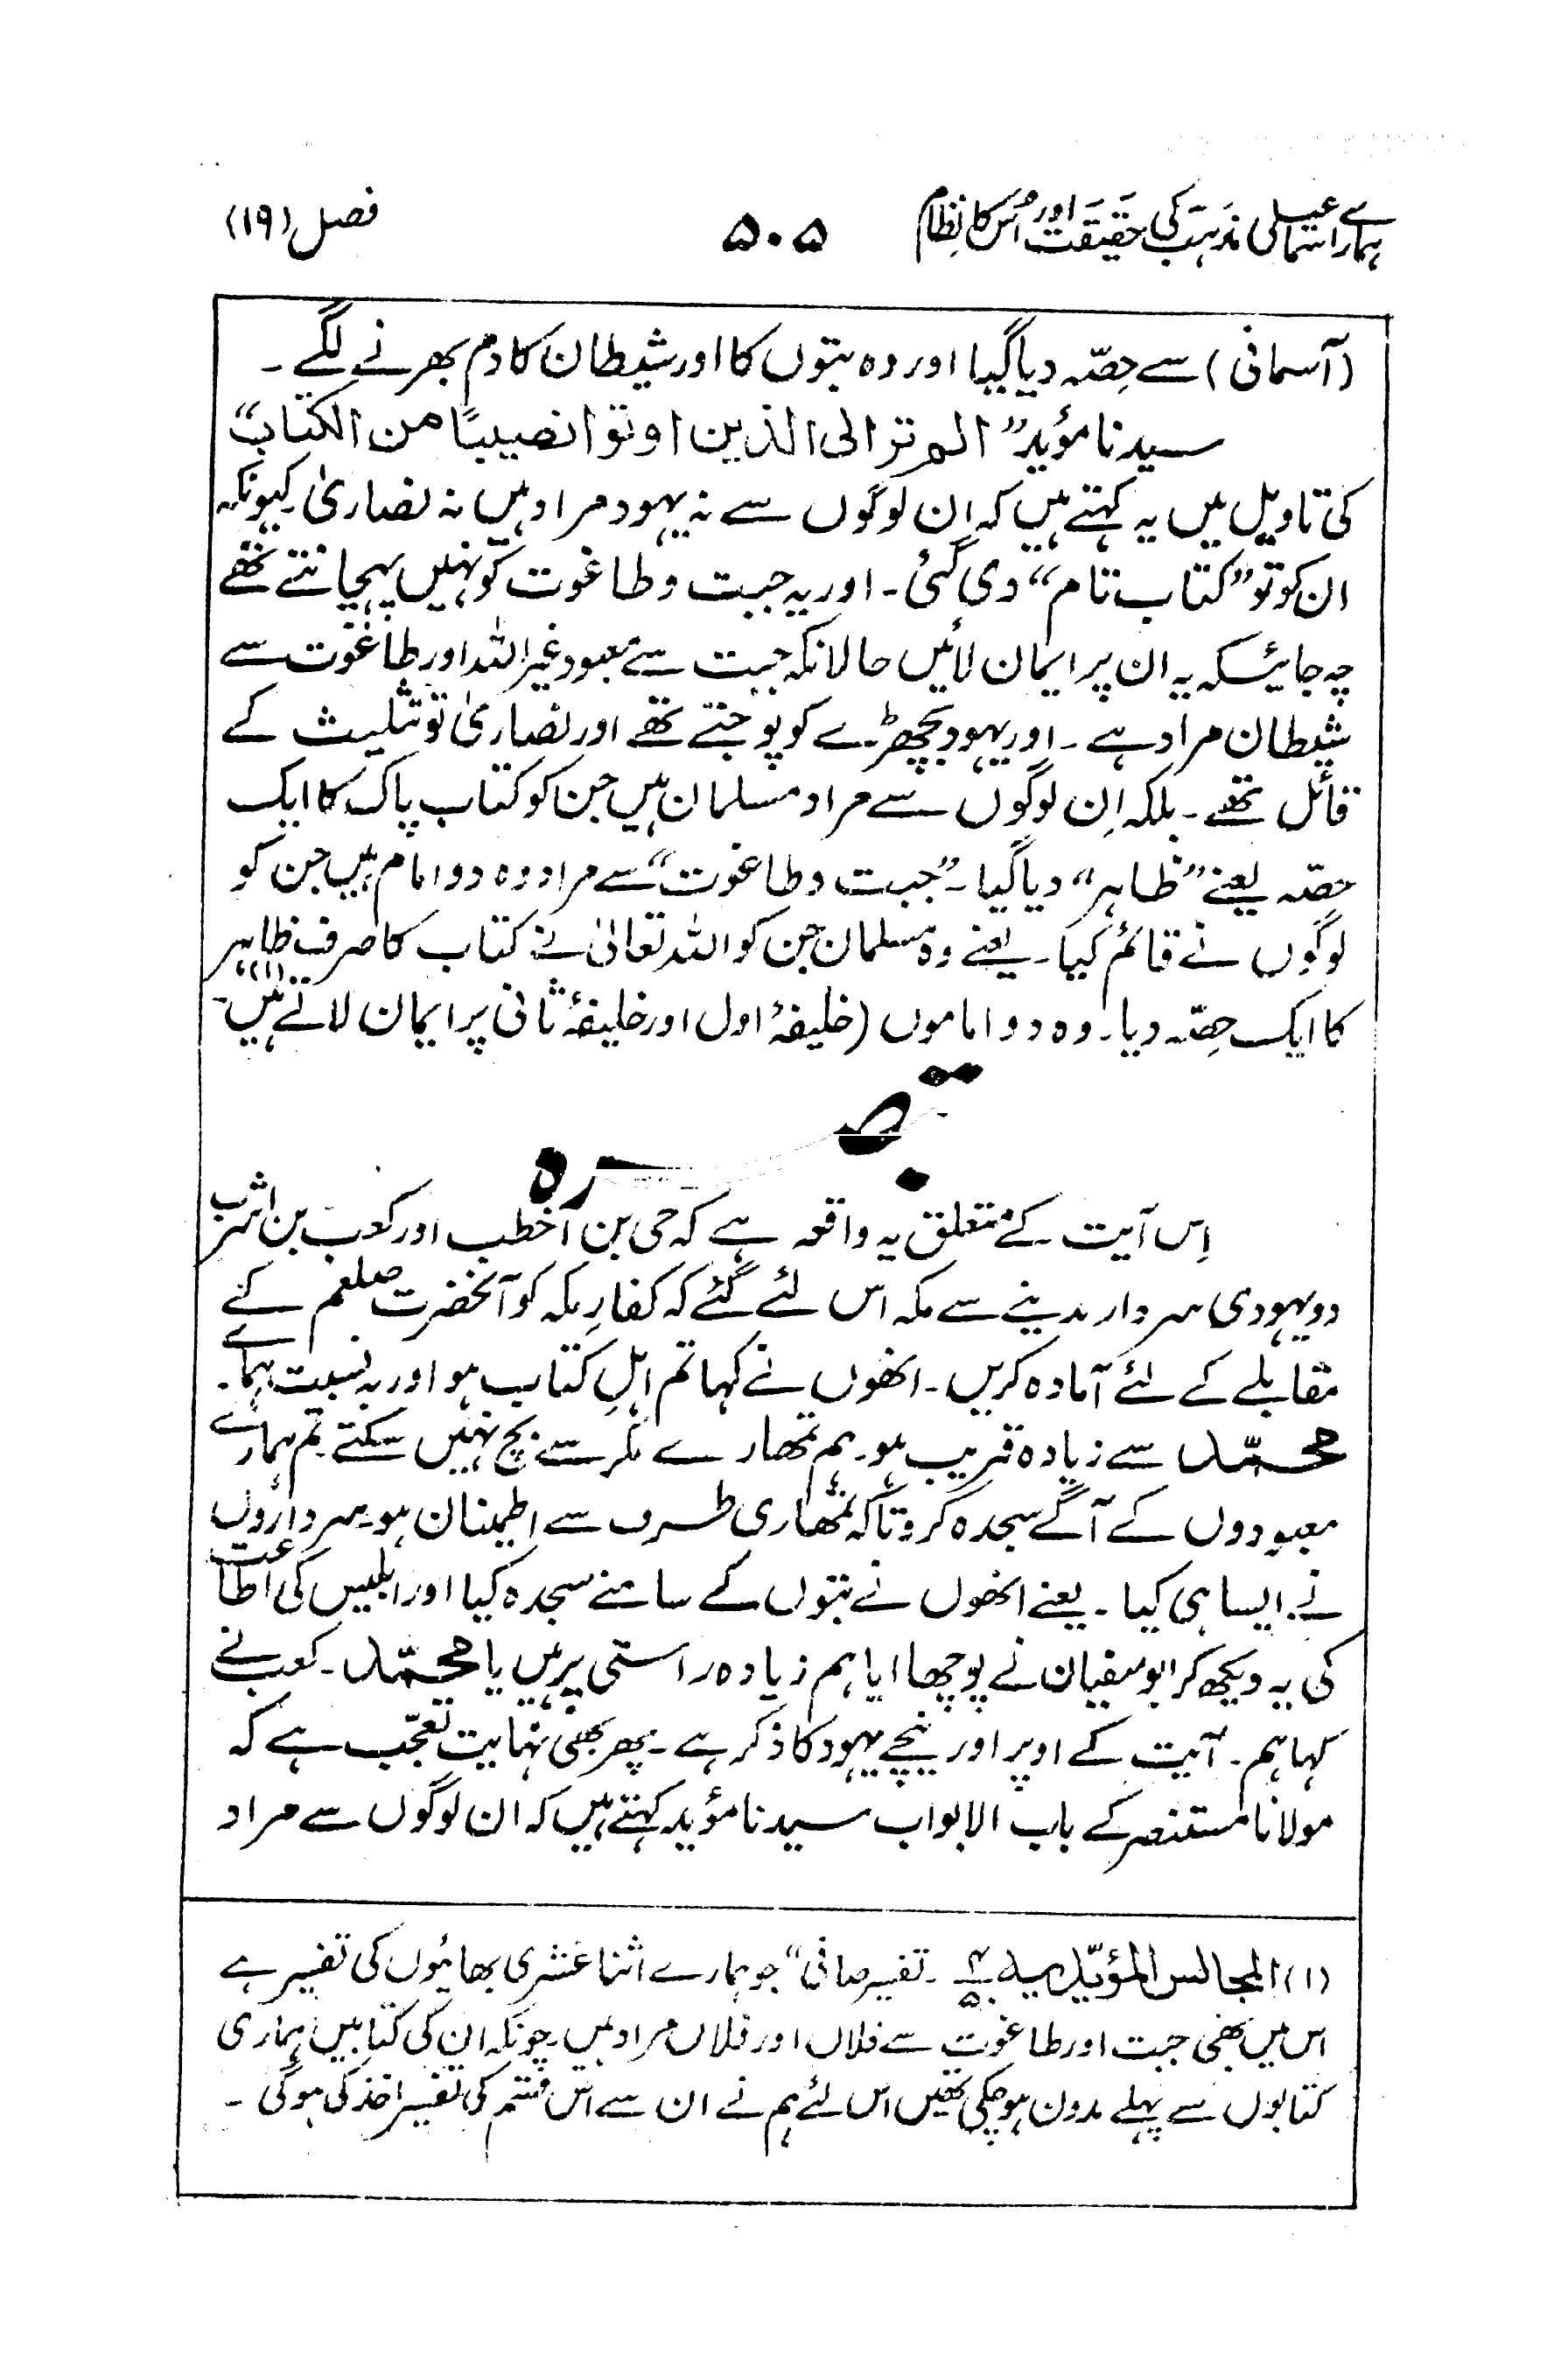 ہمارے اسماعیلی مذہب کی حقیقت اور اُس کا نظام
۵۰۵
فصل (۱۹)
(آسمانی) سے حِصّہ دیا گیا اور وہ بتوں کا اور شیطان کا دم بھرنے لگے۔
سیدنا مؤید ”الم تر الی الذین اوتوا نصیبًا من الکتاب“
کی تاویل میں یہ کہتے ہیں کہ ان لوگوں سے نہ یہود مراد ہیں نہ نصاریٰ۔ کیونکہ
ان کو تو ”کتاب تام“ دی گئی۔ اور یہ جبت و طاغوت کو نہیں پہچانتے تھے
چہ جائیسکہ یہ ان پر ایمان لائیں حالانکہ جبت سے معبود غیر اللہ اور طاغوت سے
شیطان مراد ہے۔ اور یہود بچھڑے کو پوجتے تھے اور نصاریٰ تو تثلیث کے
قائل تھے۔ بلکہ اِن لوگوں سے مراد مسلمان ہیں جن کو کتاب پاک کا ایک
حصّہ یعنے ”ظاہر“ دیا گیا۔ ”جبت و طاغوت“ سے مراد وہ دو امام ہیں جن کو
لوگوں نے قائم کیا۔ یعنے وہ مسلمان جن کو اللہ تعالیٰ نے کتاب کا صرف ظاہر
کا ایک حِصّہ دیا۔ وہ دو اماموں (خلیفۂ اول اور خلیفۂ ثانی پر ایمان لاتے ہیں (۱)۔
تبصرہ
اِس آیت کے متعلق یہ واقعہ ہے کہ حی بن اخطب اور کعب بن اشرب
دو یہودی سردار مدینے سے مکہ اس لئے گئے کہ کفارِ مکہ کو آنحضرت صلعم کے
مقابلے کے لئے آمادہ کریں۔ انھوں نے کہا تم اہلِ کتاب ہو اور بہ نسبت ہمارے
محمّد سے زیادہ قریب ہو۔ ہم تمھارے مکر سے بچ نہیں سکتے۔ تم ہمارے
معبودوں کے آگے سجدہ کرو تاکہ تمھاری طرف سے اطمینان ہو۔ سرداروں
نے ایسا ہی کیا۔ یعنے انھوں نے بتوں کے سامنے سجدہ کیا اور ابلیس کی اطاعت
کی یہ دیکھ کر ابو سفیان نے پوچھا ایا ہم زیادہ راستی پر ہیں یا محمّد۔ کعب نے
کہا ہم۔ آیت کے اوپر اور نیچے یہود کا ذکر ہے۔ پھر بھی نہایت تعجّب ہے کہ
مولانا مستنصر کے باب الابواب سیدنا مؤید کہتے ہیں کہ ان لوگوں سے مراد
(۱) المجالس المؤیّدیہ ۔ تفسیر صافی“ جو ہمارے اثنا عشری بھائیوں کی تفسیر ہے
اس میں بھی جبت اور طاغوت سے فلاں اور فلاں مراد ہیں۔ چونکہ ان کی کتابیں ہماری
کتابوں سے پہلے مدون ہو چکی تھیں اس لئے ہم نے ان سے اس قسم کی تفسیر اخذ کی ہوگی۔